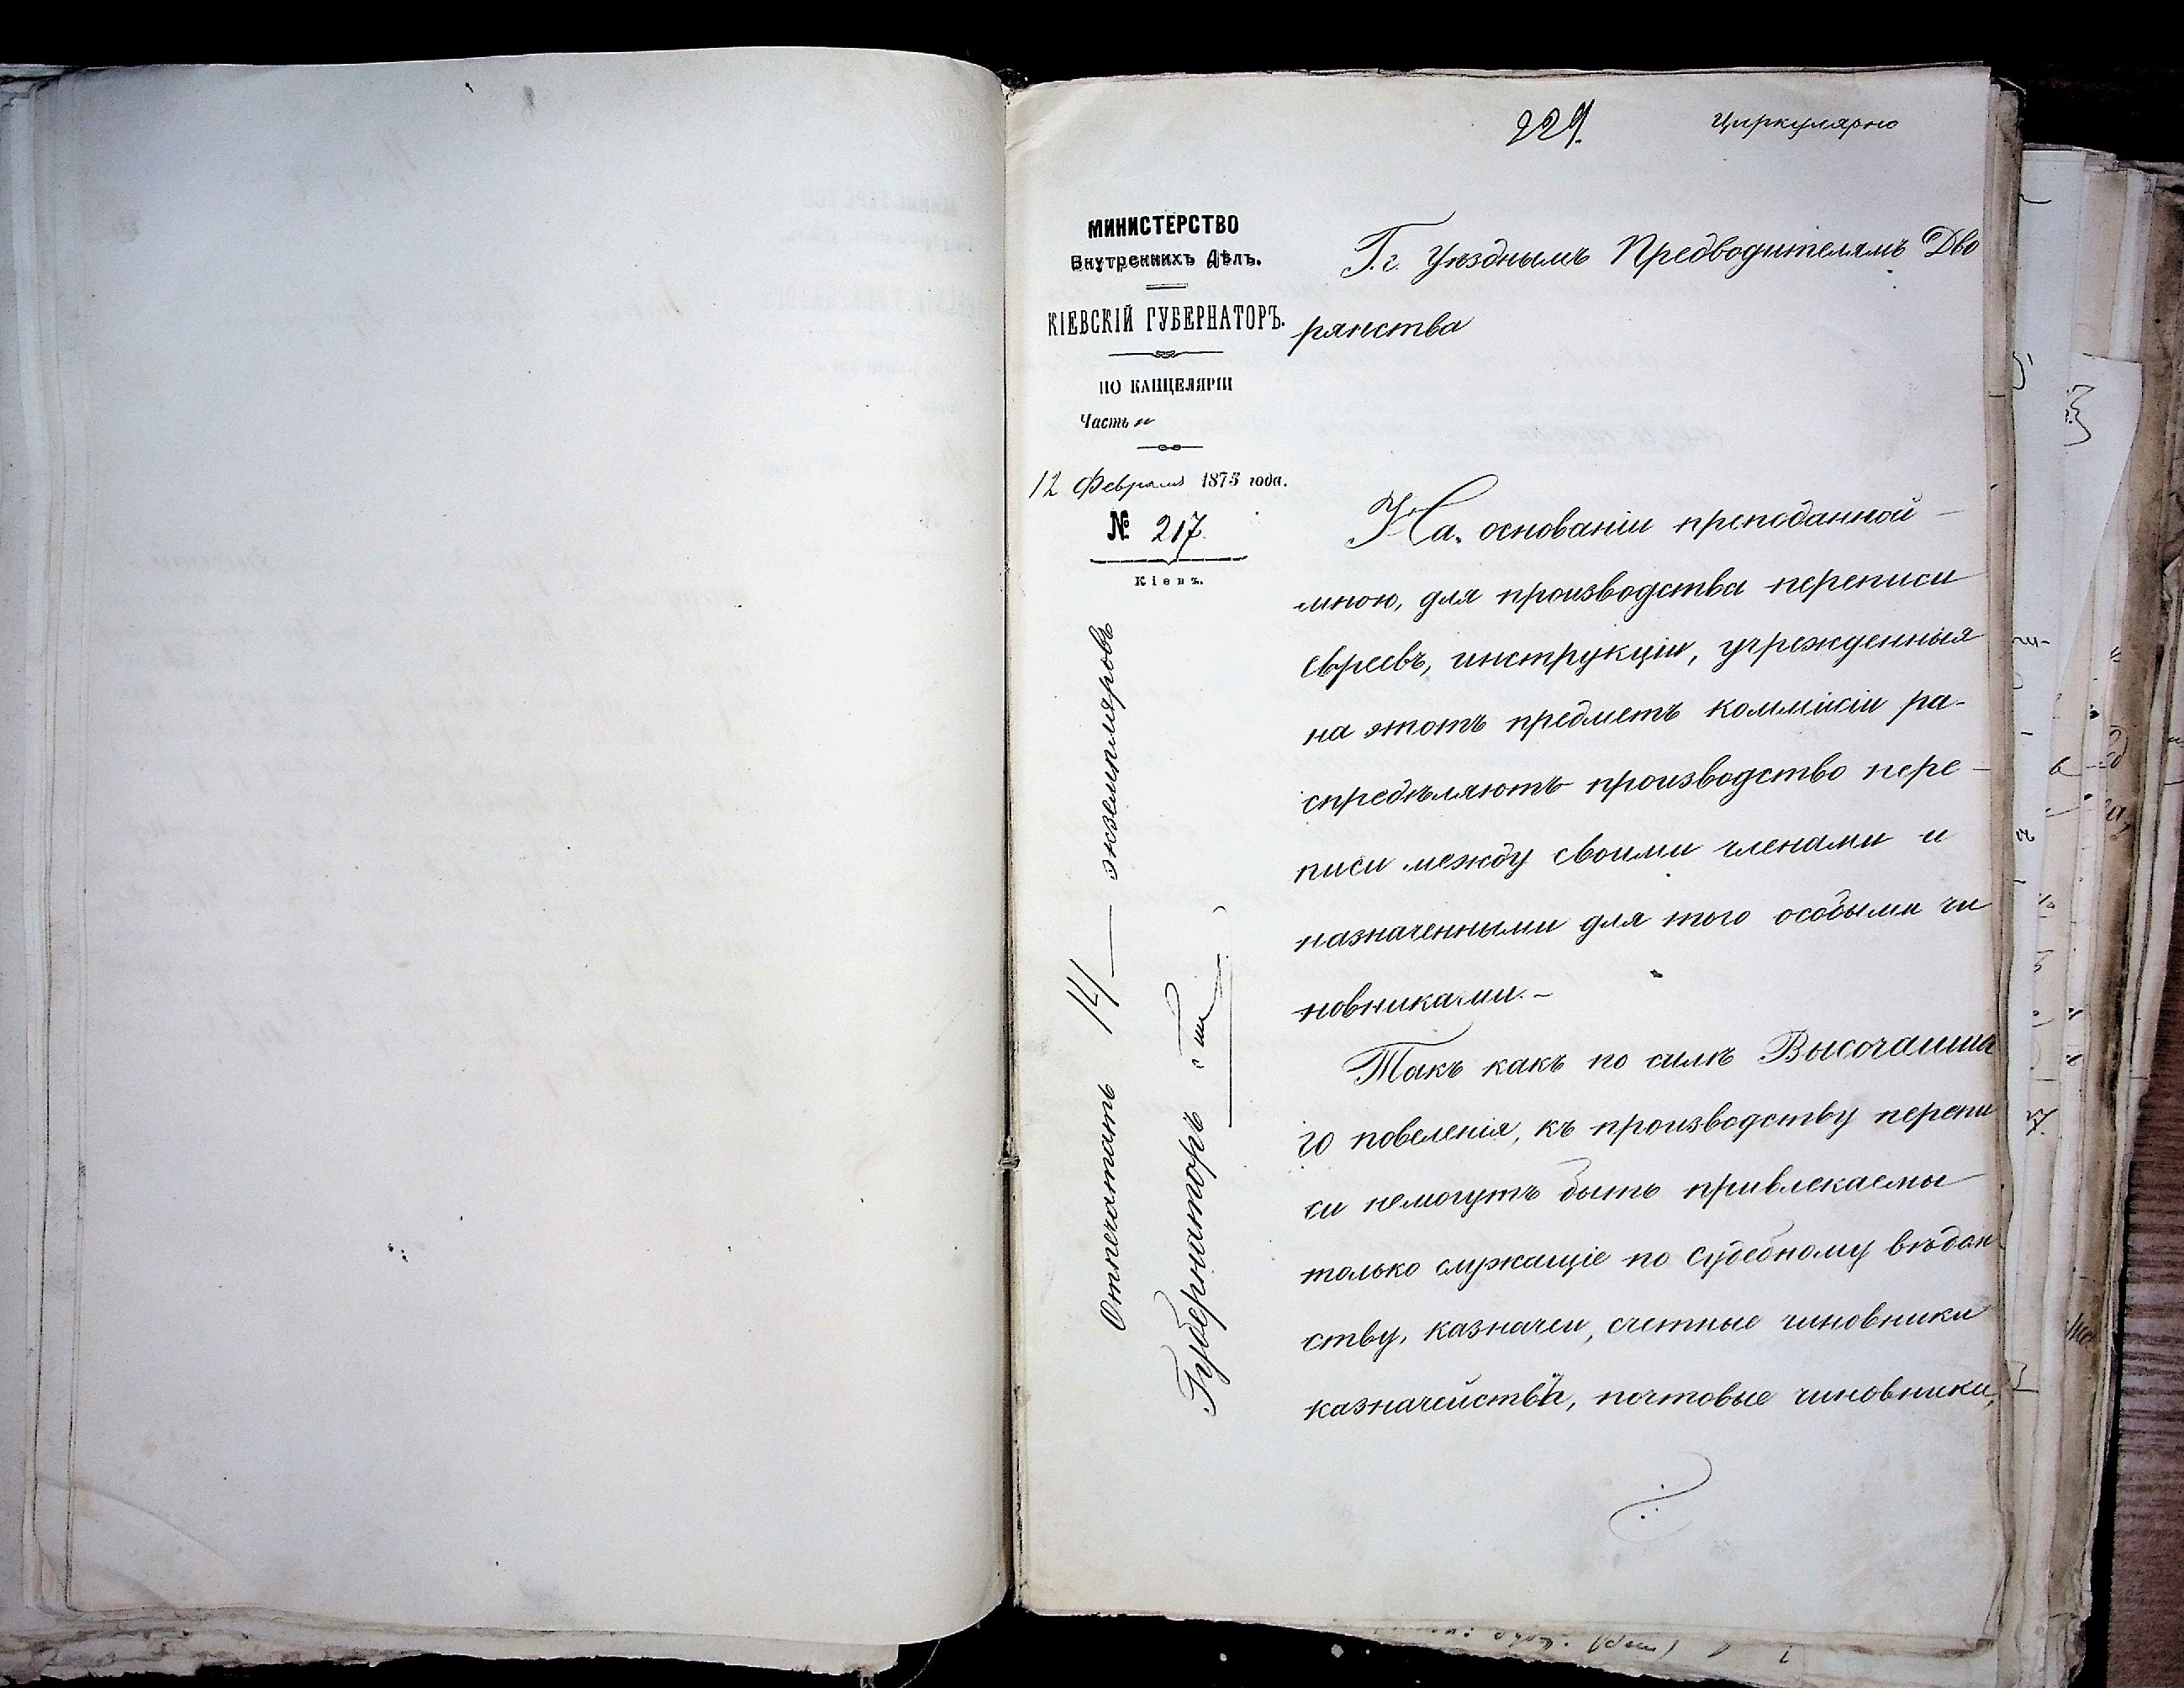 229.
Циркулярно
МИНИСТЕРСТВО
Внутреннихъ Дѣлъ.
КІЕВСКІЙ ГУБЕРНАТОРЪ.
ПО КАНЦЕЛЯРІИ
Часть
12 Февраля 1875 года.
№ 217.
Кіевъ.
Г.г. Уѣзднымъ Предводителямъ Дво
рянства
На основаніи преподанной
мною, для производства переписи
евреевъ, инструкціи, учрежденныя
на этотъ предметъ коммисіи ра-
спредѣляютъ производство пере-
писи между своими членами и
назначенными для того особыми чи
новниками.-
Такъ какъ по силѣ Высочайша
го повеленія, къ производству перепи
си немогутъ быть привлекаемы
только служащіе по судебному вѣдом
ству, казначеи, счетные чиновники
казначействъ, почтовые чиновники,
Отпечатать 14 — экземпляровъ
Губернаторъ